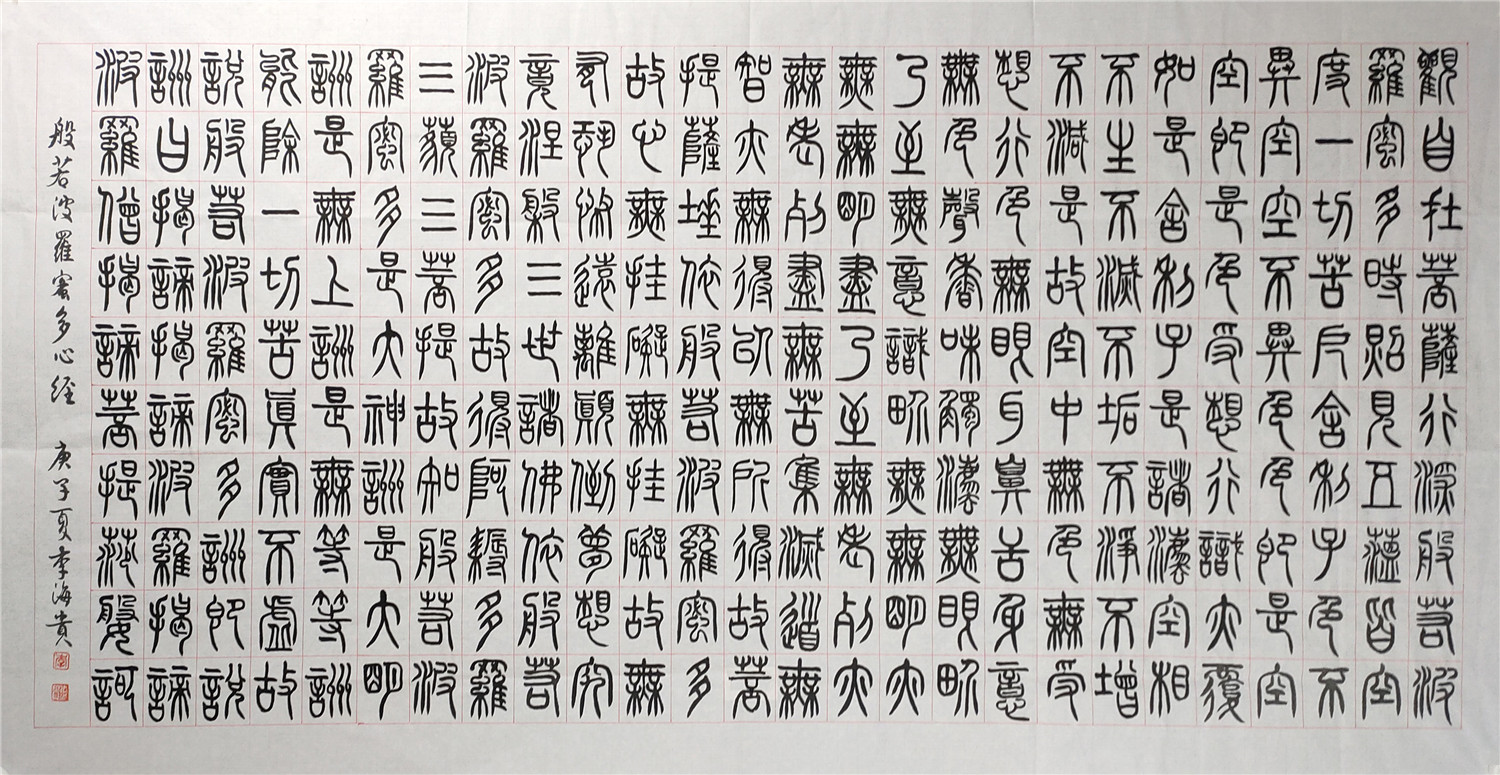 觀自在菩薩行深般若波
羅蜜多時照見五蘊皆空
度一切苦厄舍利子色不
異空空不異色色即是空
空即是色受想行識亦復
如是舍利子是諸法空相
不生不滅不垢不淨不增
不減是故空中無色無受
想行色無眼耳鼻舌身意
無色聲香味觸法無眼界
乃至無意識界無無明亦
無無明盡乃至無老死亦
無老死盡無苦集滅道無
智亦無得以無所得故菩
提薩埵依般若波羅蜜多
故心無挂礙無挂礙故無
有恐怖遠離顛倒夢想究
竟涅槃三世諸佛依般若
波羅蜜多故得阿耨多羅
三藐三菩提故知般若波
羅蜜多是大神詶是大明
詶是無上詶是無等等詶
能除一切苦真實不虛故
說般若波羅蜜多詶即說
詶曰揭諦揭諦波羅揭諦
波羅僧揭諦菩提莎婆訶
般若波羅蜜多心经 庚子夏李海贵